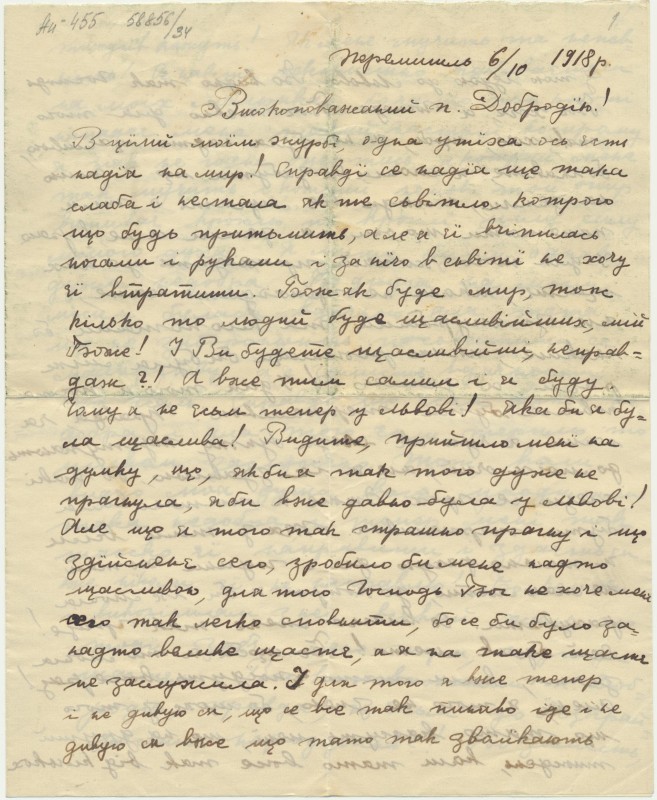 Ан-455 58856/34
1
Перемишль 6/10 1918 р.
Високоповажаний п. Добродїю!
В цїлій моїм журбі, одна утїха ось єсть
надїя на мир! Справдї се надїя ще така
слаба і нестала як те сьвітло котрого
що будь притьмить, але я її вчіпилась
ногами і руками і за нїчо в сьвітї не хочу
її втратити. Бож як буде мир, то ж
кілько то людий буде щасливійших, мій
Боже! І Ви будете щасливійші, неправ=
даж?! А вже тим самим і я буду.
Чому я не єсьм тепер у Львові! Яка би я бу-
ла щаслива! Видите, прийшло менї на
думку, що, як би я так того дуже не
прагнула, я би вже давно була у Львові!
Але що я того так страшно прагну і що
здїйсненє сего, зробило би мене надто
щасливою, для того Господь Бог не хоче менї
сего так легко сповнити, бо се би було за-
надто велике щастє, а я на таке щастє
не заслужила. І для того я вже тепер
і не дивую ся, що се все так пиняво іде і не
дивую ся вже що тато так зволїкають